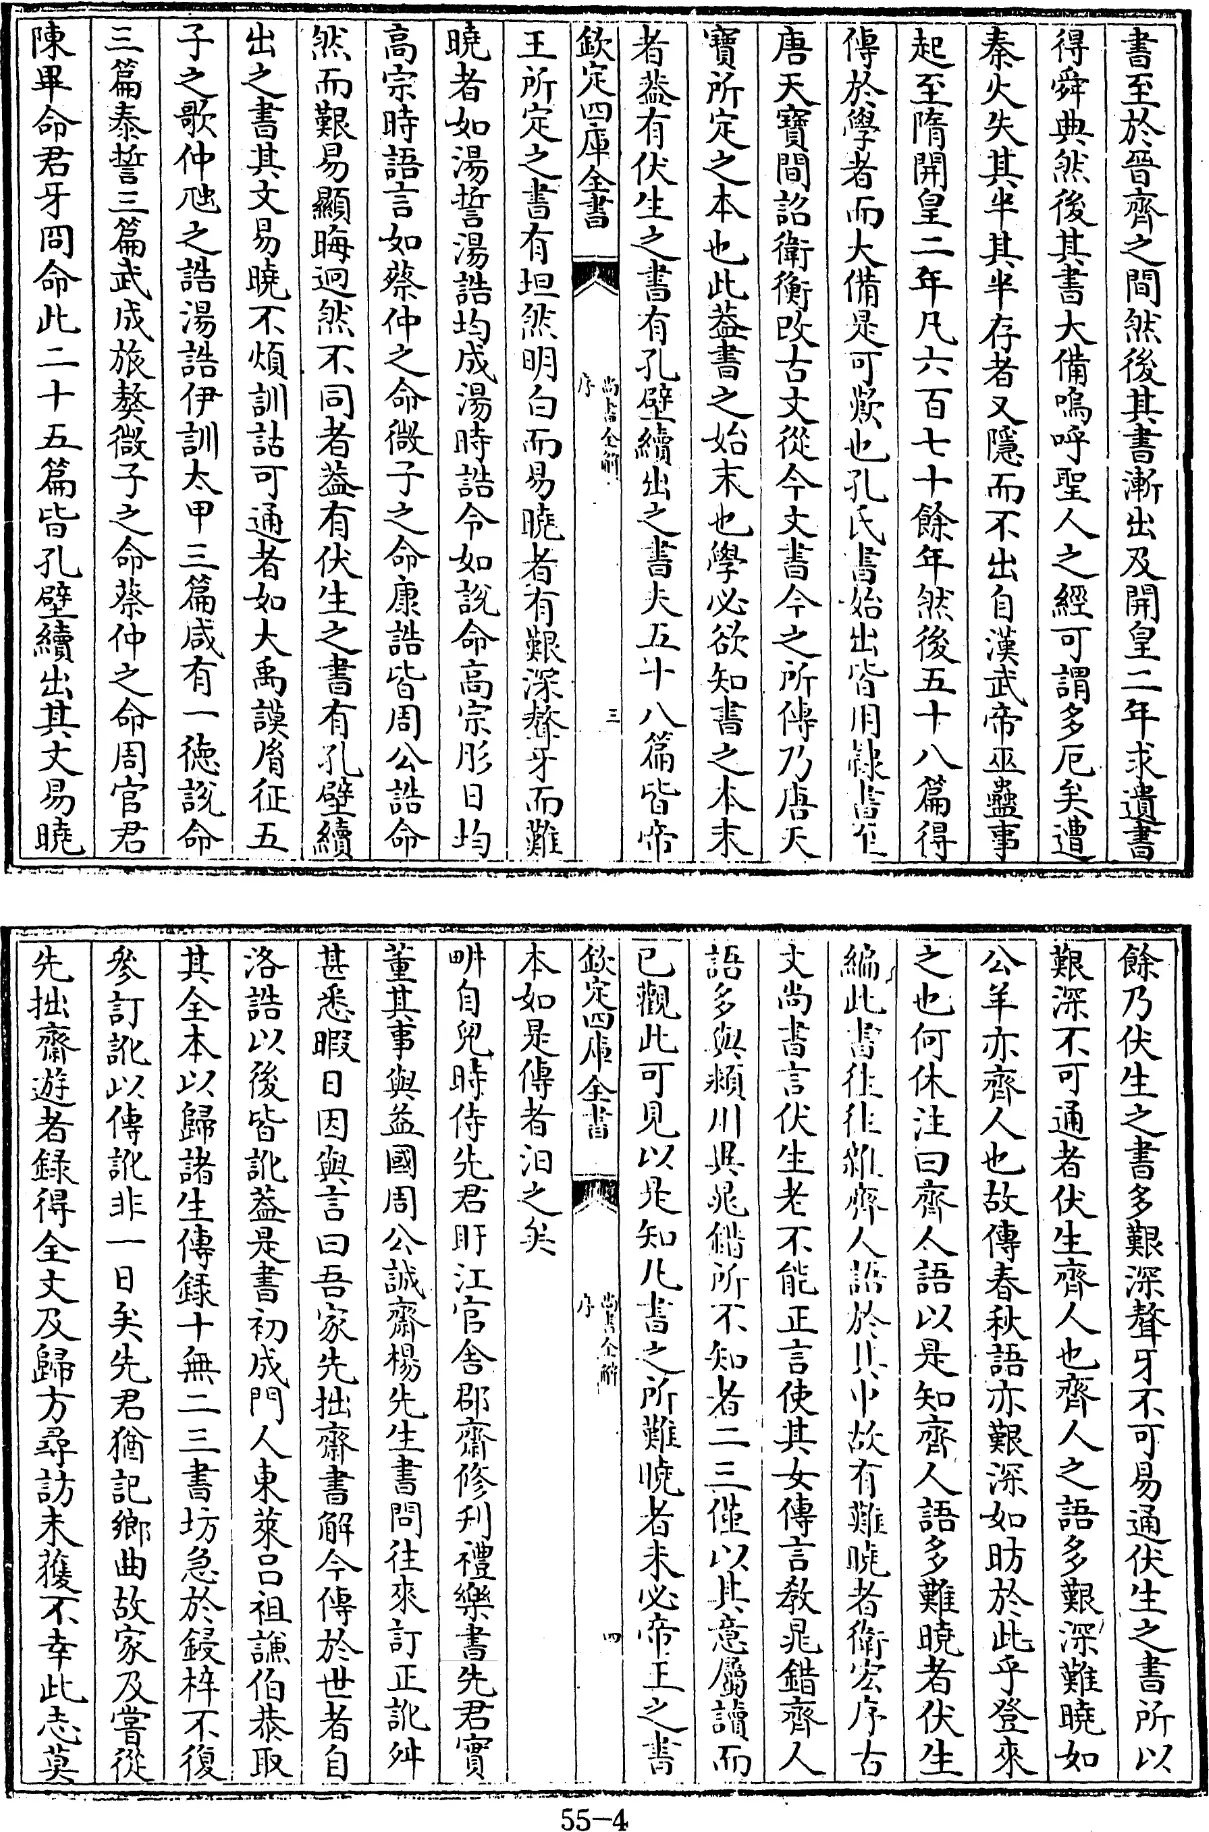 書至於晉齊之間然後其書漸出及開皇二年求遺書
得舜典然後其書大備嗚呼聖人之經可謂多厄矣遭
秦火失其半其半存者又隱而不出自漢武帝巫蠱事
起至隋開皇二年凡六百七十餘年然後五十八篇得
傳於學者而大備是可歎也孔氏書始出皆用隸書至
唐天寶間詔衛衡改古文從今文書今之所傳乃唐天
寶所定之本也此蓋書之始末也學必欲知書之本末
者蓋有伏生之書有孔壁續出之書夫五十八篇皆帝
欽定四庫全書
尚書全解
序
三
王所定之書有坦然明白而易曉者有艱深聱牙而難
曉者如湯誓湯誥均成湯時誥令如說命高宗肜日均
高宗時語言如蔡仲之命微子之命康誥皆周公誥命
然而艱易顯晦迥然不同者蓋有伏生之書有孔壁續
出之書其文易曉不煩訓詁可通者如大禹謨胤征五
子之歌仲虺之誥湯誥伊訓太甲三篇咸有一德說命
三篇泰誓三篇武成旅獒微子之命蔡仲之命周官君
陳畢命君牙冏命此二十五篇皆孔壁續出其文易曉
餘乃伏生之書多艱深聱牙不可易通伏生之書所以
艱深不可通者伏生齊人也齊人之語多艱深難曉如
公羊亦齊人也故傳春秋語亦艱深如昉於此乎登來
之也何休注曰齊人語以是知齊人語多難曉者伏生
編此書往往雜齊人語於其中故有難曉者衛宏序古
文尚書言伏生老不能正言使其女傳言教晁錯齊人
語多與潁川異晁錯所不知者二三僅以其意屬讀而
已觀此可見以是知凡書之所難曉者未必帝王之書
欽定四庫全書
尚書全解
序
四
本如是傳者汩之矣
畊自兒時侍先君盱江官舍郡齋修刋禮樂書先君實
董其事與益國周公誠齋楊先生書問往來訂正訛舛
甚悉暇日因與言曰吾家先拙齋書解今傳於世者自
洛誥以後皆訛蓋是書初成門人東萊呂祖謙伯恭取
其全本以歸諸生傳録十無二三書坊急於鋟梓不復
參訂訛以傳訛非一日矣先君猶記鄉曲故家及嘗從
先拙齋遊者録得全文及歸方尋訪未獲不幸此志莫
55-4